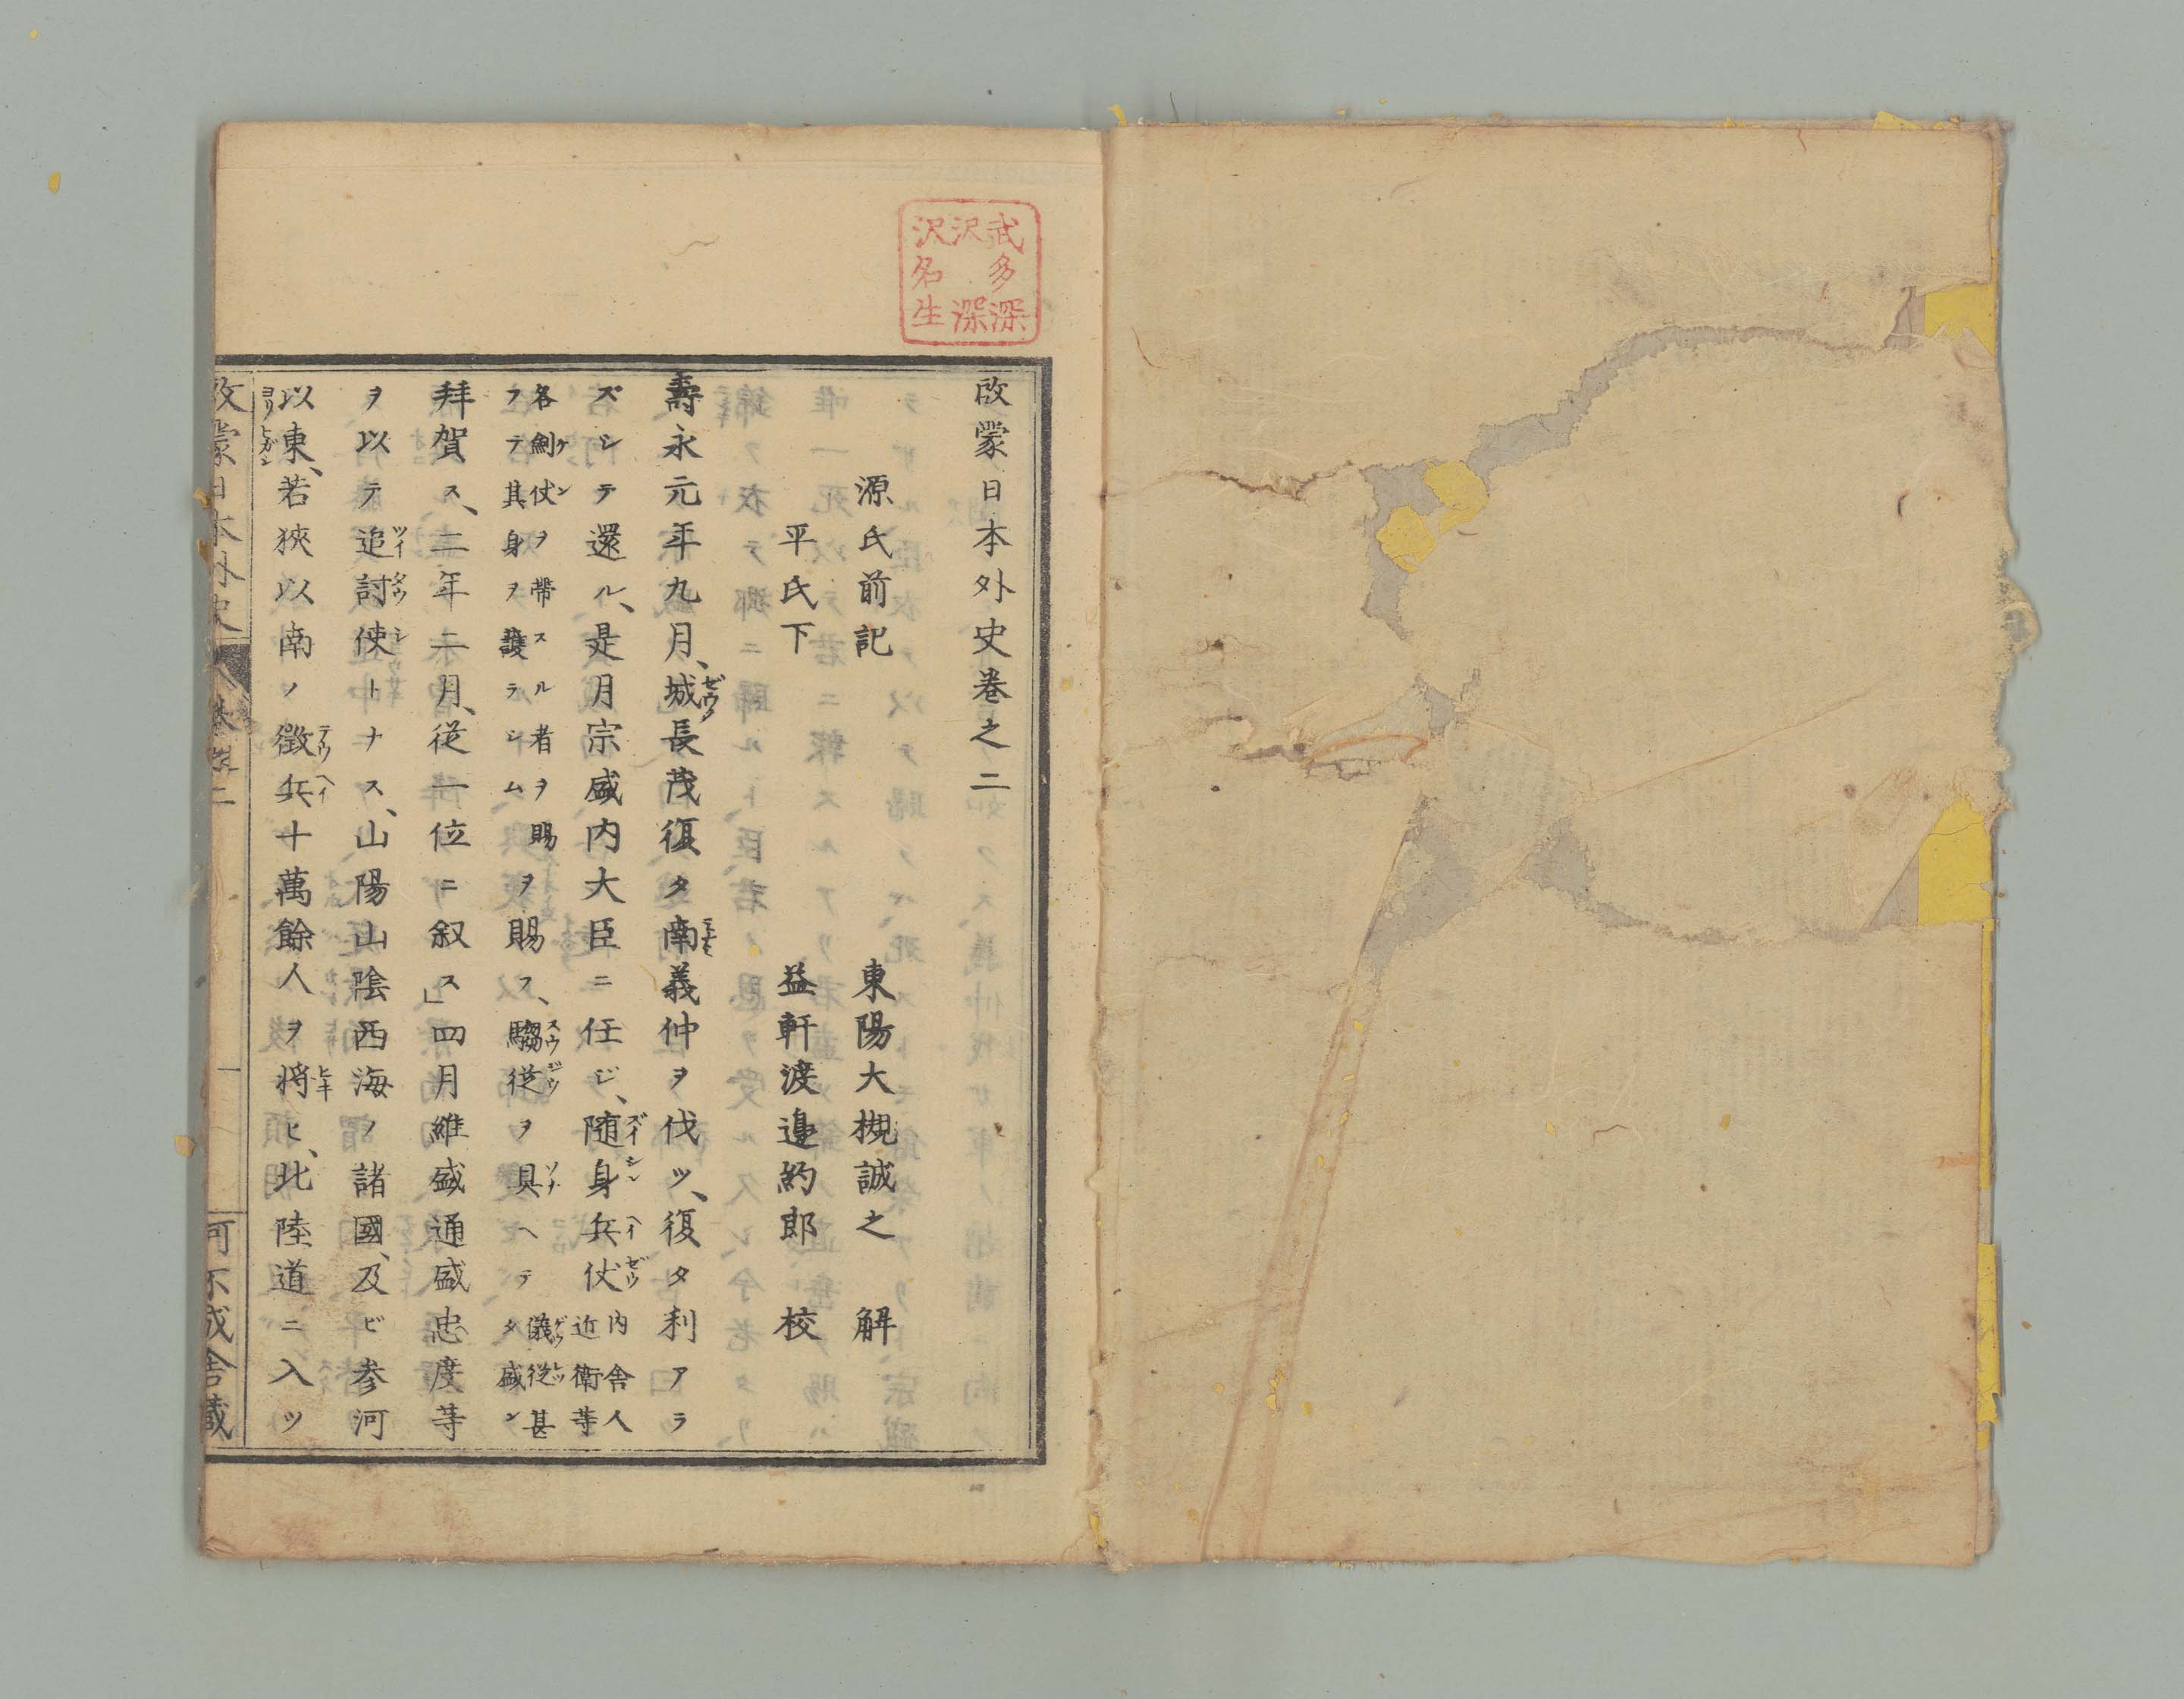 啟蒙日本外史巻之二
源氏前記　東陽大槻誠之　解
平氏下　益軒渡邉約郎　校
壽永元年九月、城長茂復タ南義仲ヲ伐ツ、復タ利アラ
ズシテ還ル、是月宗盛内大臣ニ任ジ、随身兵仗内舎人近衛等
各劍仗ヲ帶スル者ヲ賜フテ其身ヲ護ラシムヲ賜ス、騶從ヲ具ヘテ儀從甚タ盛ン
拜賀ス、二年二月、從一位ニ叙ス」四月維盛通盛忠度等
ヲ以テ追討使トナス、山陽山陰西海ノ諸國、及ビ参河
以東、若狹以南ノ徴兵十萬餘人ヲ將ヒ、北陸道ニ入ツ
啟蒙日本外史　巻之二　一　可不成舎蔵
武多深
沢深
沢名生